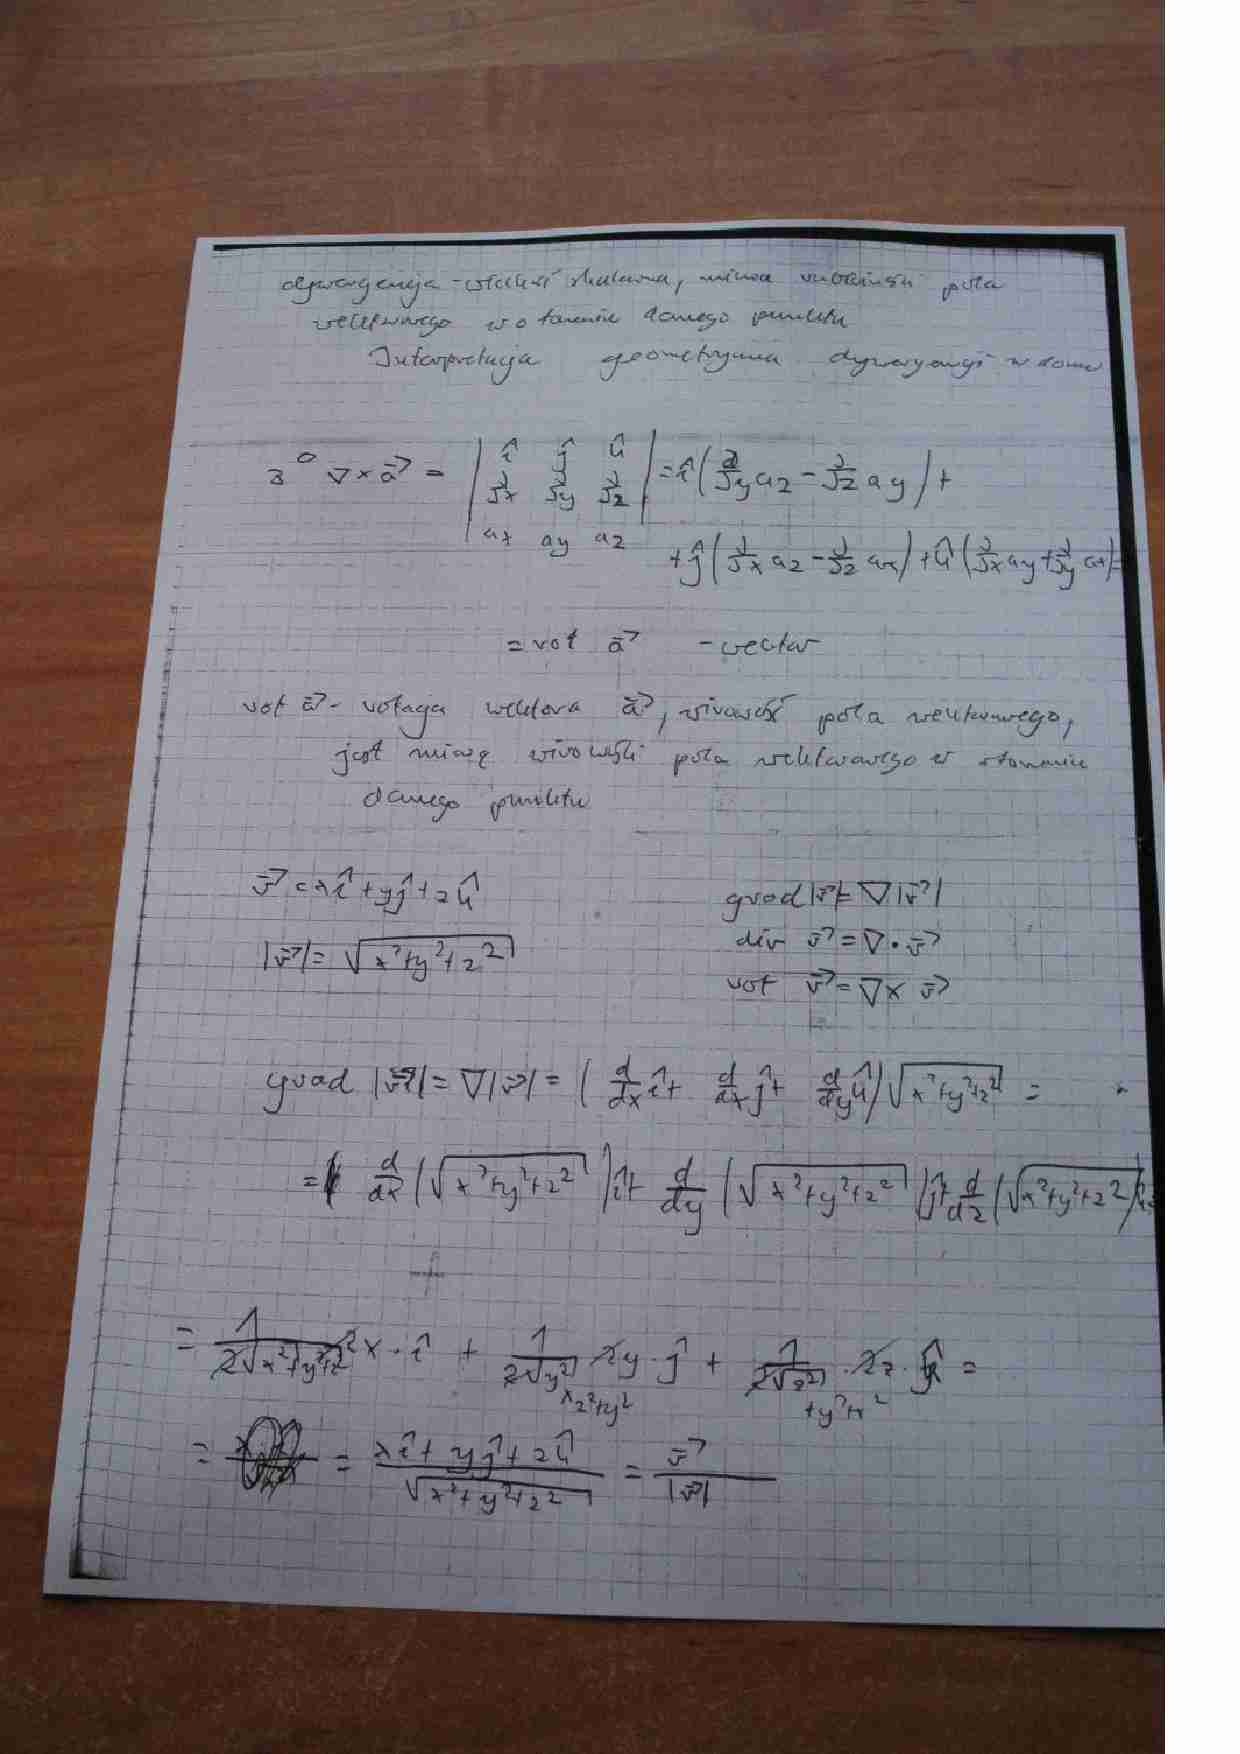 dywergencja - wielkość skalarna, miara rozbieżności pola
wektorowego w otoczeniu danego punktu
Interpretacja geometryczna dywergencji w domu
3° ∇ × a⃗ = | î ĵ k̂ | = î (∂/∂y az - ∂/∂z ay) +
∂/∂x ∂/∂y ∂/∂z
ax ay az
+ ĵ (∂/∂x az - ∂/∂z ax) + k̂ (∂/∂x ay + ∂/∂y ax) =
= rot a⃗ - wektor
rot a⃗ - rotacja wektora a⃗, wirowość pola wektorowego,
jest miarą wirowości pola wektorowego w otoczeniu
danego punktu
r⃗ = xî + yĵ + zk̂
|r⃗| = √(x²+y²+z²)
grad |r⃗| = ∇|r⃗|
div r⃗ = ∇ · r⃗
rot r⃗ = ∇ × r⃗
grad |r⃗| = ∇|r⃗| = (d/dx î + d/dx ĵ + d/dy k̂) √(x²+y²+z²) =
= d/dx (√(x²+y²+z²)) î + d/dy (√(x²+y²+z²)) ĵ + d/dz (√(x²+y²+z²)) k̂ =
= 1/(2√(x²+y²+z²)) 2x · î + 1/(2√(y²)) 2y · ĵ + 1/(2√(z²)) · 2z · k̂ =
x z²+y² +y²+x²
= = (xî + yĵ + zk̂)/√(x²+y²+z²) = r⃗/|r⃗|